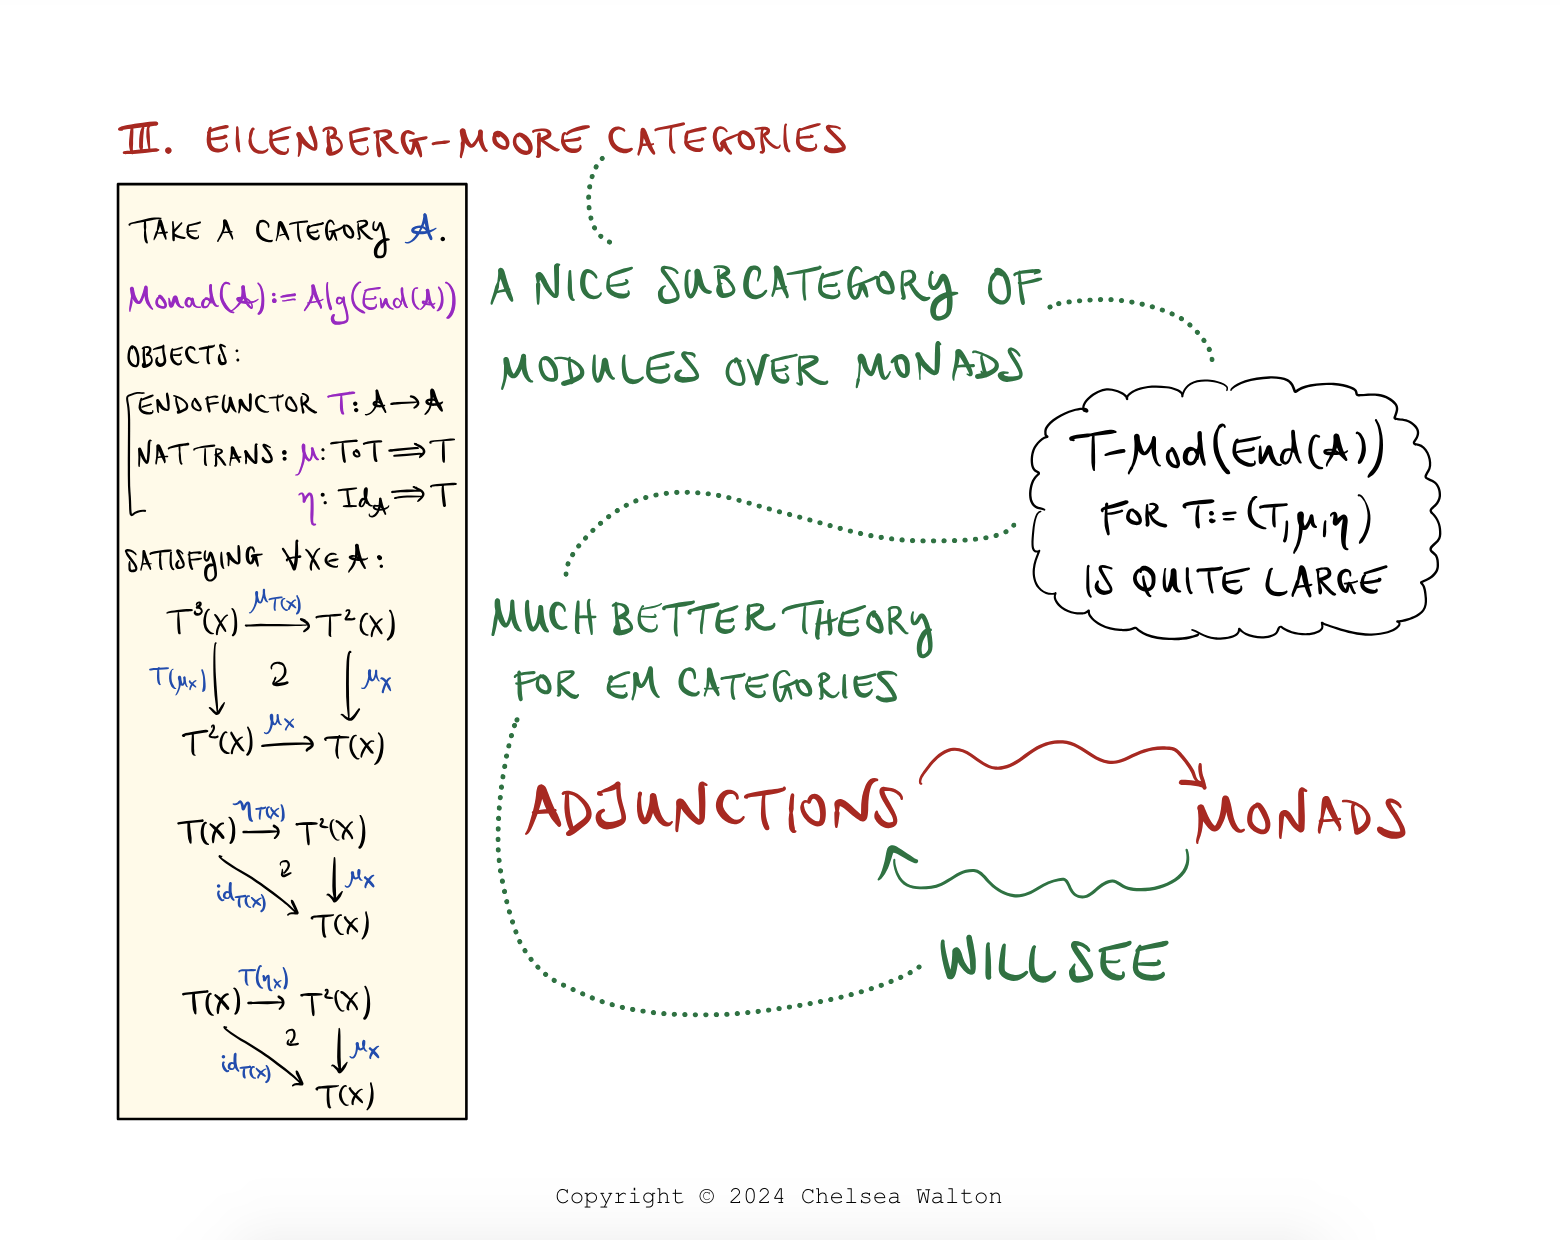 III. EILENBERG-MOORE CATEGORIES
TAKE A CATEGORY A.
Monad(A) := Alg(End(A))
OBJECTS:
ENDOFUNCTOR T: A → A
NAT TRANS: μ: T∘T ⟹ T
η: Id_A ⟹ T
SATISFYING ∀X ∈ A:
T³(X) μ_T(X) → T²(X)
T(μ_X) 2 μ_X
T²(X) μ_X → T(X)
T(X) η_T(X) → T²(X)
id_T(X) 2 μ_X
T(X)
T(X) T(η_X) → T²(X)
id_T(X) 2 μ_X
T(X)
A NICE SUBCATEGORY OF
MODULES OVER MONADS
T-Mod(End(A))
FOR T := (T, μ, η)
IS QUITE LARGE
MUCH BETTER THEORY
FOR EM CATEGORIES
ADJUNCTIONS
MONADS
WILL SEE
Copyright © 2024 Chelsea Walton